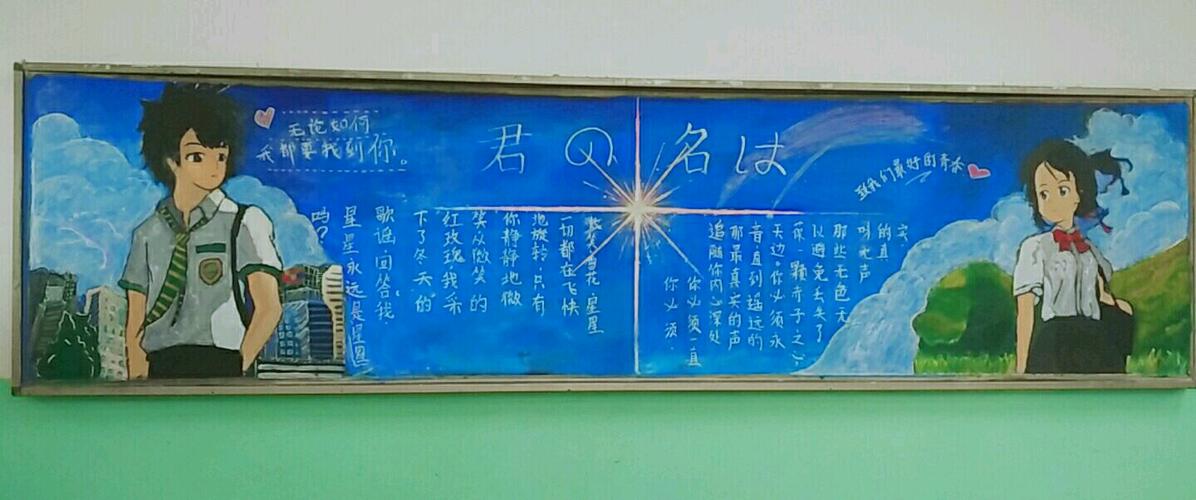 无论如何
我都要找到你。
君の名は
致我们最好的青春
雪花 星星
一切都在飞快
地旋转,只有
你静静地微
笑从微笑的
红玫瑰我采
下了冬天的
歌谣回答我.
星星永远是星星
吗?
你必须
你必须一直
追随你内心深处
那最真实的声
音.直到遥远的
天边.你必须永
一颗赤子之心
以避免去失了
那些无色无
叫无声
的真
实